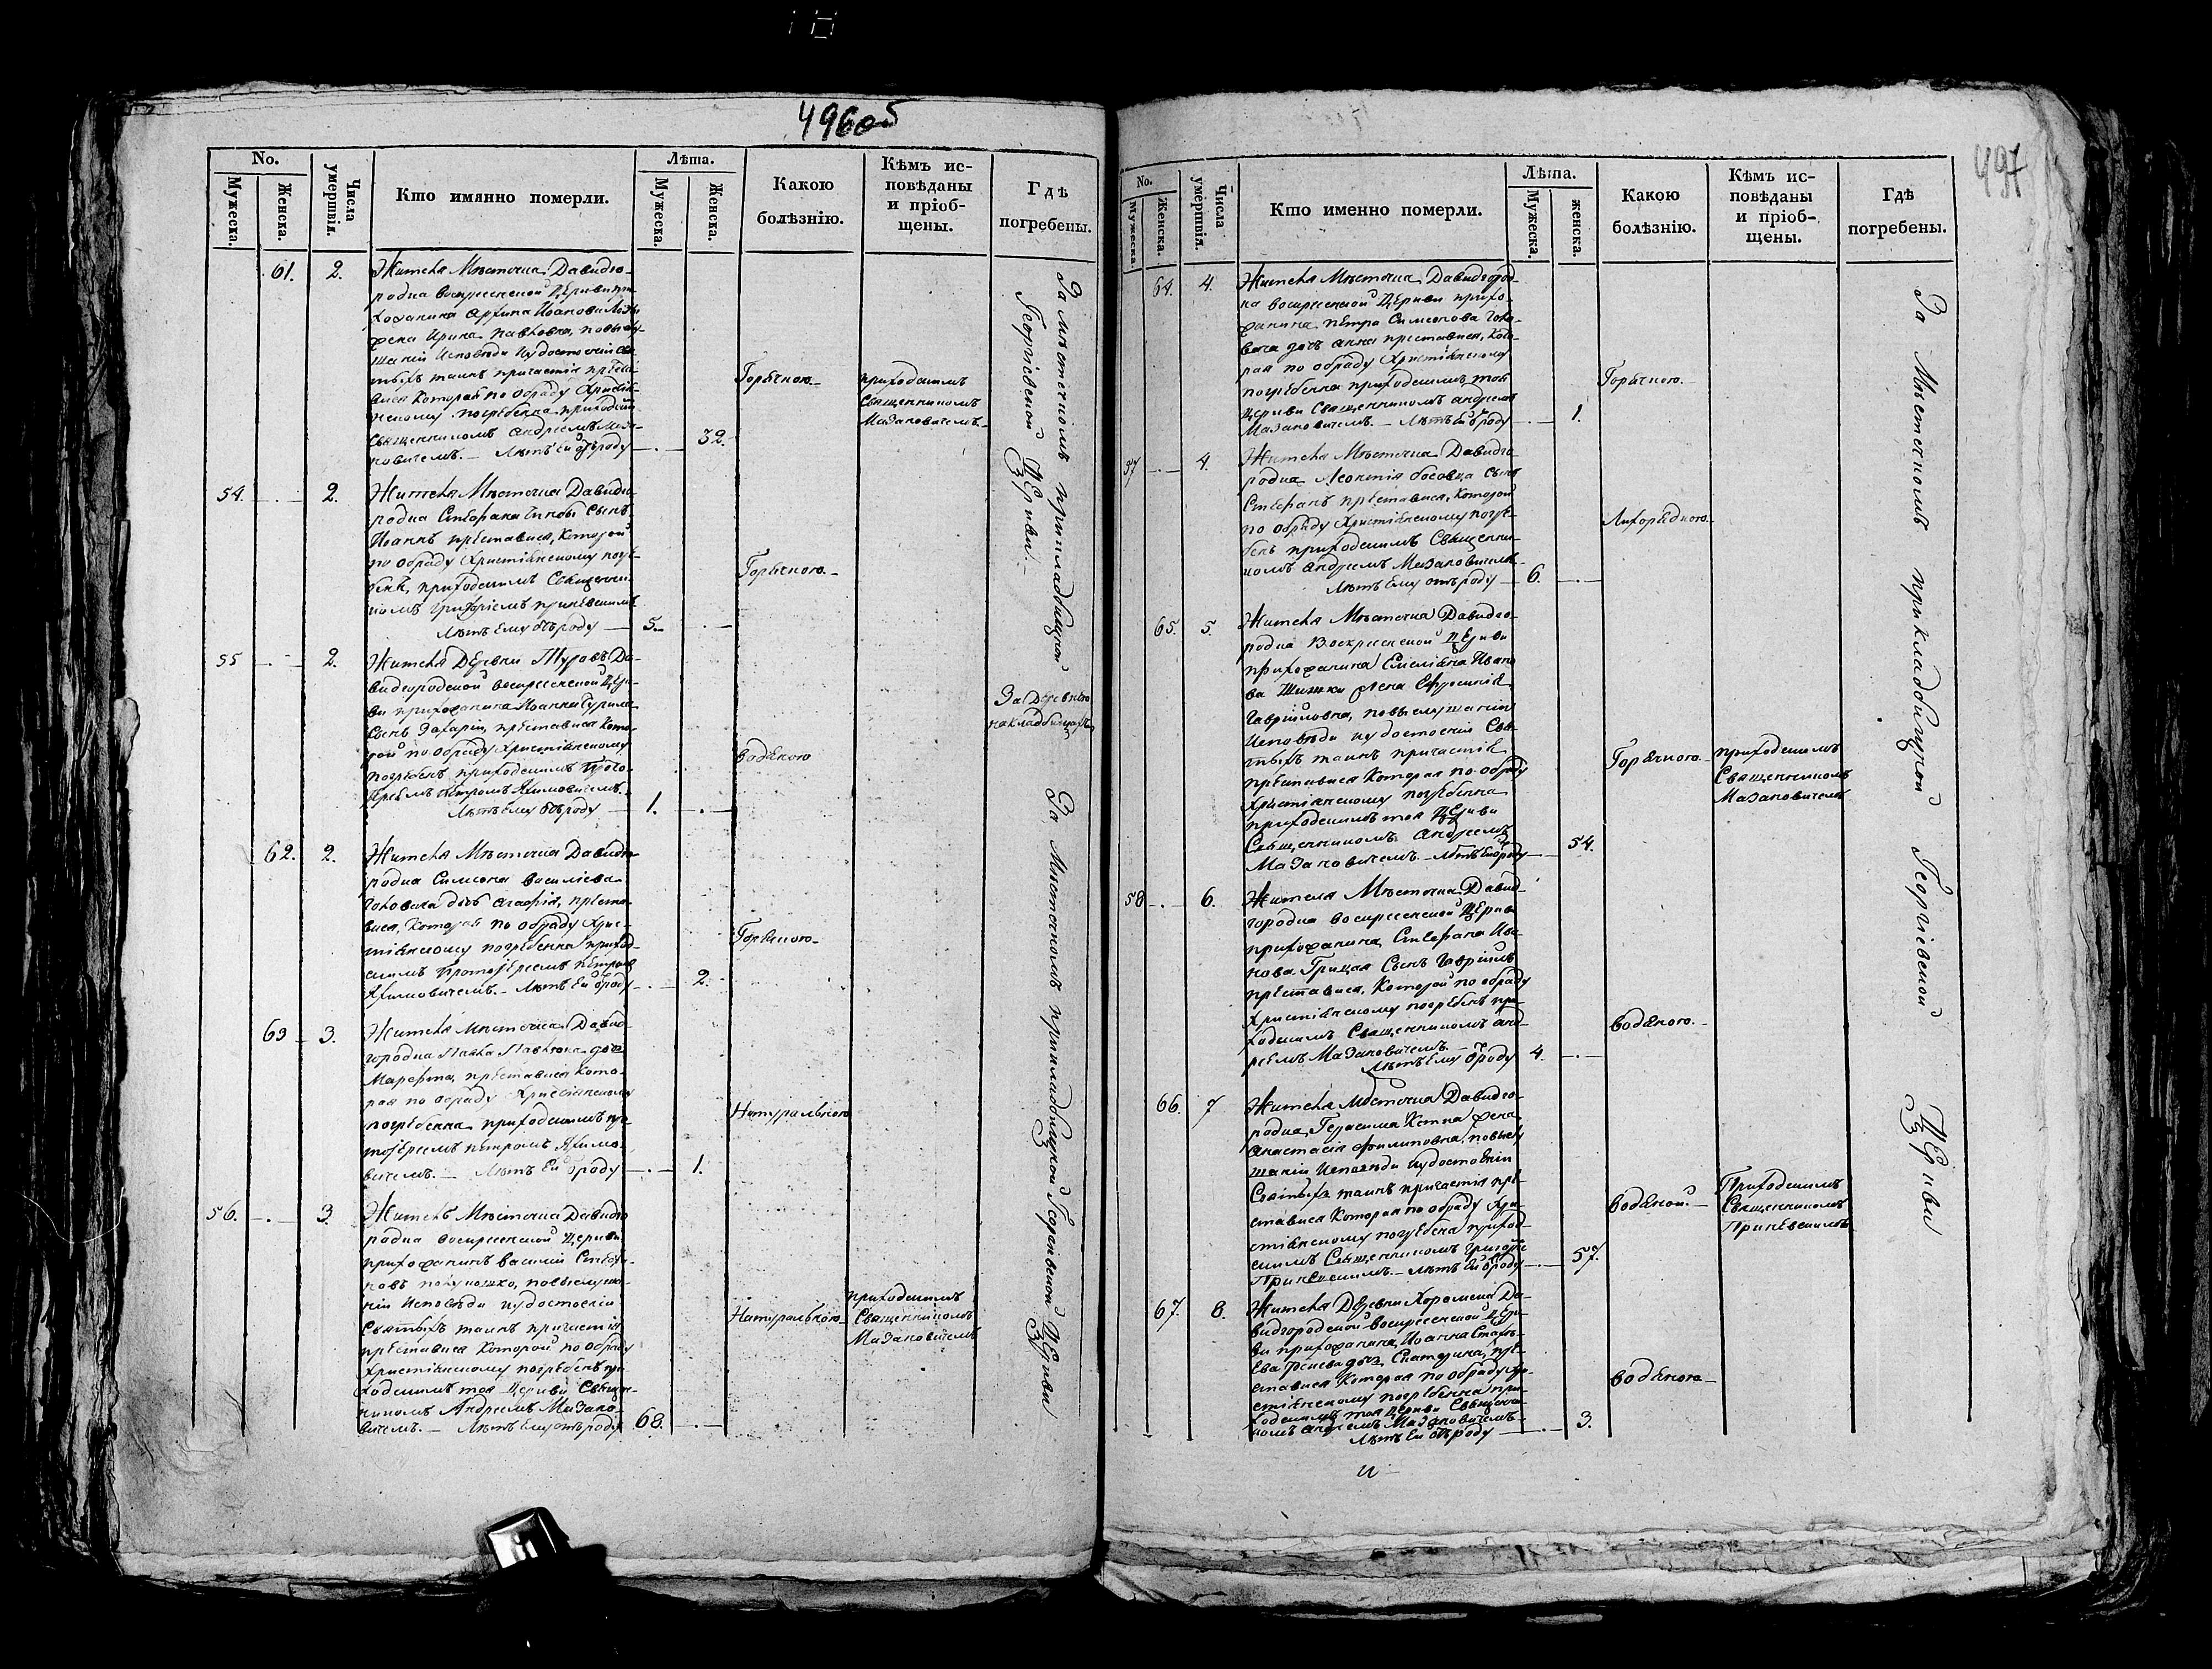 496об
No.
Мужеска.
Женска.
Числа умершвія.
Кто имянно померли.
Лѣта.
Мужеска.
Женска.
Какою болѣзнію.
Кѣмъ ис-
повѣданы
и пріоб-
щены.
Гдѣ
погребены.
61. 2. Жителя Мѣстечка Давидго-
родка воскресенской Церкви при-
хожанина
жена Ирина Павлова, повыслу-
шаніи Исповѣди и удостоеніи свя-
тыхъ таинъ причастія преста-
вися Которая по обряду Христіа-
нскому погребенна приходскимъ
Священникомъ Андреемъ Маза-
новичемъ. — Лѣтъ Ей отъроду 32.
Горячкою.
приходскимъ
Священникомъ
Мазановичемъ.
За мѣстечкомъ прикладбищной
Георгіевской Церкви.
54. 2. Жителя Мѣстечка Давидго-
родка Стефана сынъ
Иоаннъ преставися, Которой
по обряду Христіанскому погре-
бенъ, приходскимъ Священни-
комъ
Лѣтъ Ему отъроду 5.
Горячкою.
55 2. Жителя Деревни Туровъ Да-
видгородской воскресенской Цер-
кви прихожанина Иоанна
сынъ Захарій, преставися Кото-
рой по обряду Христіанскому
погребенъ приходскимъ Прото-
іереемъ Петромъ Якимовичемъ.
Лѣтъ Ему отъроду 1.
водяною
За Деревнею
на кладбищахъ
62. 2. Жителя Мѣстечка Давидго-
родка Симеона Василіева
дочь Агафія, преста-
вися, Которая по обряду Хрис-
тіанскому погребенна приход-
скимъ Протоіереемъ Петромъ
Якимовичемъ. — Лѣтъ Ей отъроду 2.
Горячкою.
За Мѣстечкомъ прикладбищной Георгіевской Церкви
63 3. Жителя Мѣстечка Давид-
городка Павла Павлюка дочь
Марефта, преставися Кото-
рая по обряду Христіанскому
погребенна приходскимъ про-
тоіереемъ Петромъ Якимо-
вичемъ. — Лѣтъ Ей отъроду 1.
Натуральною
56. 3. Житель Мѣстечка Давидго
родка воскресенской Церкви
прихожанинъ василій Стефа-
новъ повыслуша-
ніи Исповѣди и удостоеніи
Святыхъ таинъ причастія
преставися Которой по обряду
Христіанскому погребенъ при-
ходскимъ тоя Церкви Священ-
никомъ Андреемъ Мазано-
вичемъ. — Лѣтъ Ему отъроду 68.
Натуральною
приходскимъ
Священникомъ
Мазановичемъ
497
No.
Мужеска.
Женска.
Числа умершвія.
Кто именно померли.
Лѣта.
Мужеска.
женска.
Какою
болѣзнію.
Кѣмъ ис-
повѣданы
и пріоб-
щены.
Гдѣ
погребены.
64. 4. Жителя Мѣстечка Давидгород-
ка воскресенской Церкви прихо-
жанина Петра Симеонова
дочь Анна преставися, Кото-
рая по обряду Христіанскому
погребенна приходскимъ той
Церкви Священникомъ Андреемъ
Мазановичемъ. — Лѣтъ Ей отроду 1.
Горячкою.
За Мѣстечкомъ прикладбищной Георгіевской Церкви
57 4. Жителя Мѣстечка Давидго
родка Леонтія сынъ
Стефанъ преставися, Которой
по обряду Христіанскому погре-
бенъ приходскимъ Священни-
комъ Андреемъ Мазановичемъ.
Лѣтъ Ему отъроду 6.
Лихорадкою.
65. 5. Жителя Мѣстечка Давидго-
родка Воскресенской Церкви
прихожанина Ивано
ва жена
Гавриловна, повыслушаніи
Исповѣди и удостоеніи Свя-
тыхъ таинъ причастія
преставися Которая по обряду
Христіанскому погребенна
приходскимъ тоя Церкви
Священникомъ Андреемъ
Мазановичемъ. — Лѣтъ Ей отроду 54.
Горячкою.
приходскимъ
Священникомъ
Мазановичемъ
58 6. Жителя Мѣстечка Давид-
городка воскресенской Церкви
прихожанина Стефана Ива-
нова Грицая Сынъ Гавріилъ
преставися, Которой по обряду
Христіанскому погребенъ при-
ходскимъ Священникомъ Анд-
реемъ Мазановичемъ. —
Лѣтъ Ему отроду 4.
водяною.
66. 7 Жителя Мѣстечка Давидго-
родка, Герасима жена
Анастасія Филиповна, повыслу
шаніи Исповѣди и удостоеніи
Святыхъ таинъ причастія пре-
ставися Которая по обряду Хри-
стіанскому погребена приход-
скимъ Священникомъ
Лѣтъ Ей отроду 57.
водяной.
Приходскимъ
Священникомъ
67. 8. Жителя Деревни Хоромска Да-
видгородской воскресенской Цер-
кви прихожанина Иоанна
дочь Екатерина, пре-
ставися Которая по обряду Хри-
стіанскому погребенна при-
ходскимъ тоя Церкви Священни-
комъ Андреемъ Мазановичемъ.
Лѣтъ Ей отъроду 3.
водяною.